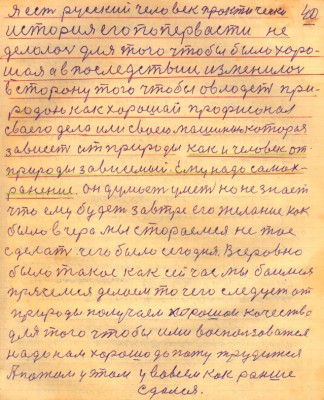 40
Я ест русский человек практически
история его по первасти не
делолос для того чтобы было хоро-
шая а в последствии изменилос
в сторону того чтобы овлодеть при-
родой как хорошай профисонал
сваего дела или своей машины, которая
зависет от природы как и человек от
природы зависемый. Ему надо самох-
ранение. он думоет умеет но не знает
что ему будет завтре его желание как
было вчера мы стораемся не тое
сделать чего было сегодня. Всеровно
было такое как сейчас мы баимся
прячемся делаем то чего следует от
природы получаем хорошом качество
для того чтобы ими воспользоватся
надо нам хорошо до поту трудится
А потом у том увовем как ранше
сдался.